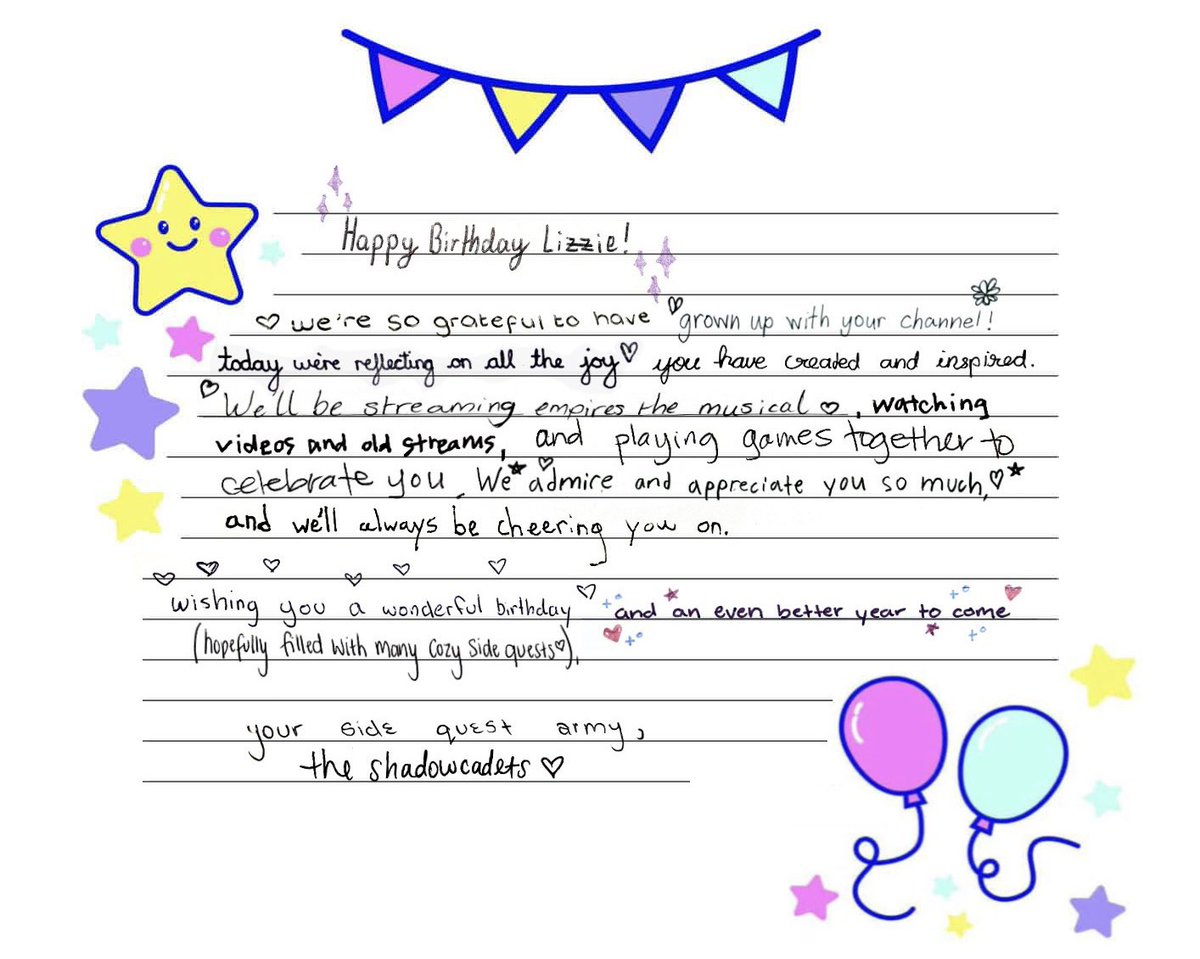 Happy Birthday Lizzie!
we're so grateful to have grown up with your channel!
today we're reflecting on all the joy you have created and inspired.
We'll be streaming empires the musical, watching
videos and old streams, and playing games together to
celebrate you. We admire and appreciate you so much,
and we'll always be cheering you on.
wishing you a wonderful birthday and an even better year to come
(hopefully filled with many cozy side quests),
your side quest army,
the shadowcadets